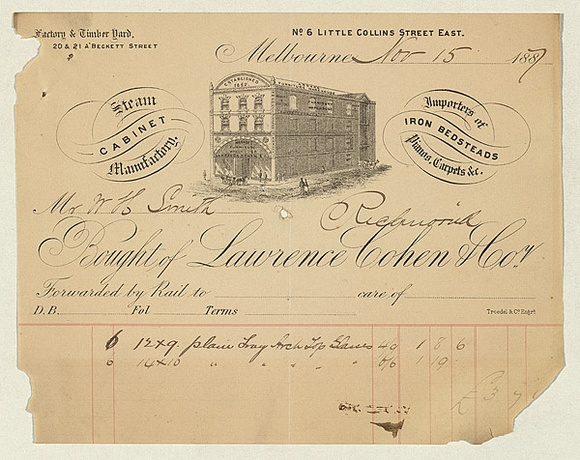 Factory & Timber Yard,
20 & 21 A'Beckett Street
No 6 Little Collins Street East.
Melbourne Nov 15 1887
ESTABLISHED
1852
Steam
CABINET
Manufactory.
Importers of
IRON BEDSTEADS
Pianos, Carpets &c.
Mr W H Smith
Richmond
Bought of Lawrence Cohen & Co.
Forwarded by Rail to care of
D.B. Fol Terms
Troedel & Co Engrs
6 12x9 plain Tray Arch Top 40 1 8 6
6 14x10 " " " " 1 19
£3 7